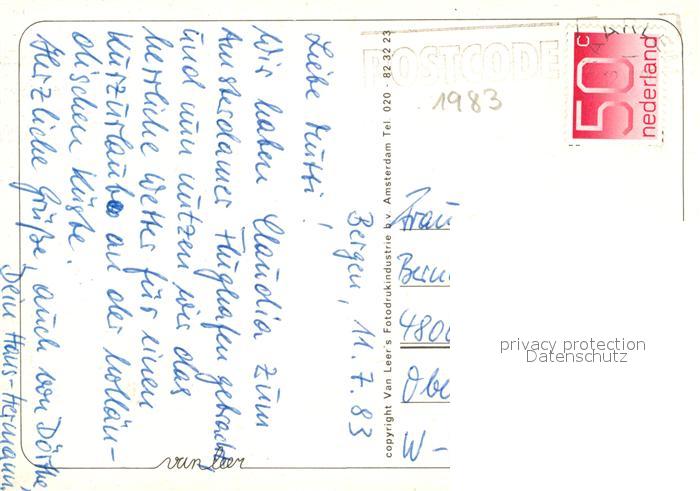 Bergen, 11.7.83
Liebe Mutti!
Wir haben Claudia zum
Amsterdamer Flughafen gebracht
und nun nutzen wir das
herrliche Wetter für einen
Kurzurlaub an der hollän-
dischen Küste.
Herzliche Grüße, auch von Dörthe,
Dein Hans-Hermann
van leer
copyright Van Leer's Fotodrukindustrie b.v. Amsterdam Tel. 020 - 82 32 23
POSTCODE
1983
50c
nederland
Frau
480
W -
privacy protection
Datenschutz